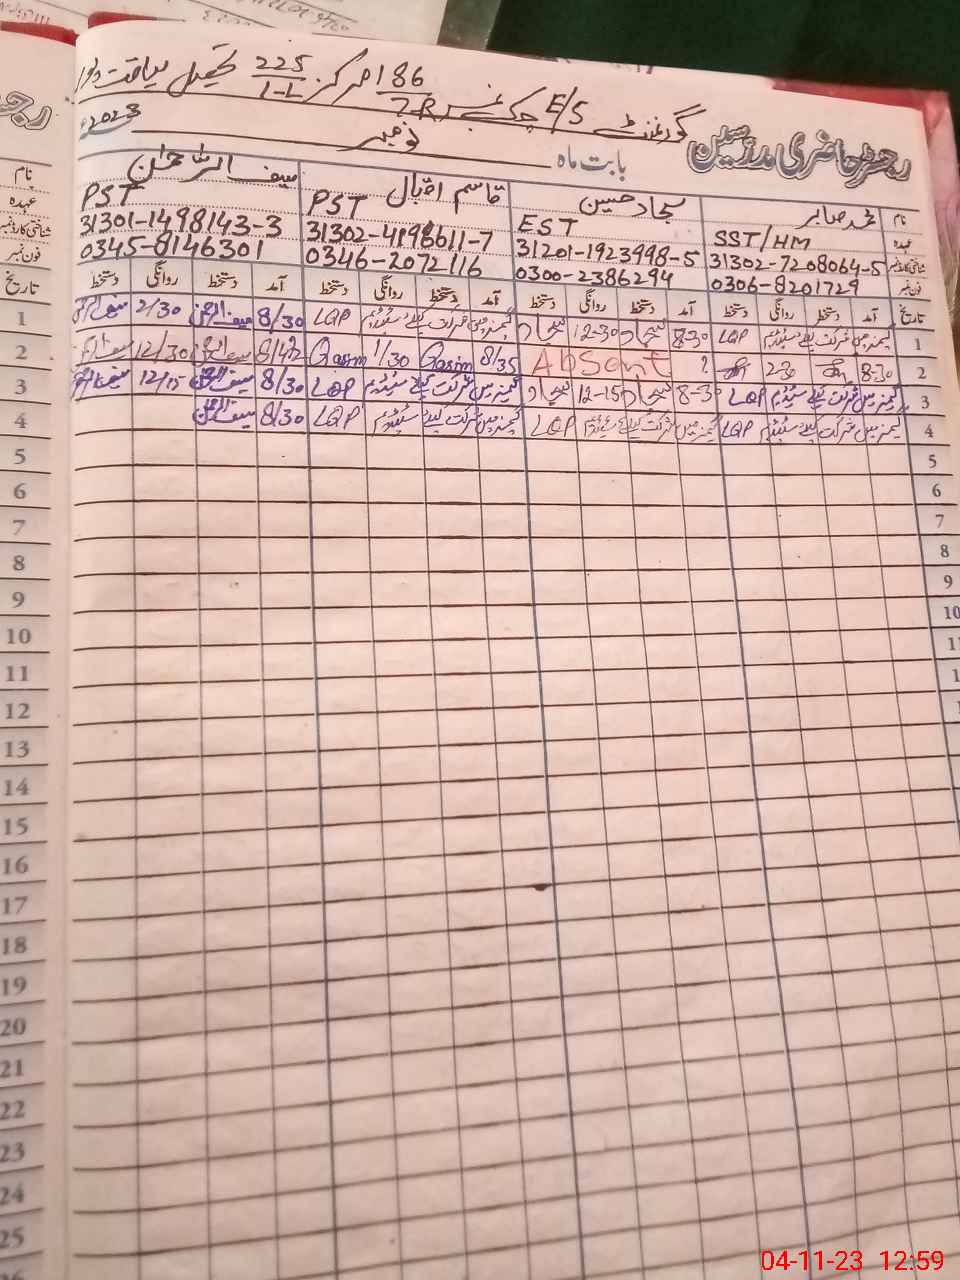 گورنمنٹ E/S چک نمبر 186/7-R مرکز 225/1-L تحصیل لیاقت پور
رجسٹر حاضری مدرسین بابت ماہ نومبر 2023
نام محمد صابر سجاد حسین قاسم اقبال سیف الرحمٰن
عہدہ SST/HM EST PST PST
شناختی کارڈ نمبر 31302-7208064-5 31201-1923998-5 31302-4198611-7 31301-1498143-3
فون نمبر 0306-8201729 0300-2386294 0346-2072116 0345-8146301
تاریخ آمد دستخط روانگی دستخط آمد دستخط روانگی دستخط آمد دستخط روانگی دستخط آمد دستخط روانگی دستخط تاریخ
1 گیمز میں شرکت کیلئے سٹیڈیم LQP 8-30 سجاد 12-30 سجاد گیمز میں شرکت کیلئے سٹیڈیم LQP 8/30 سیف الرحمن 2/30 سیف الرحمن 1
2 8-30 2-30 ? Absent 8/35 Qasim 1/30 Qasim سیف الرحمن 12/30 سیف الرحمن 2
3 گیمز میں شرکت کیلئے سٹیڈیم LQP 8-30 سجاد 12-15 سجاد گیمز میں شرکت کیلئے سٹیڈیم LQP 8/30 سیف الرحمن 12/15 سیف الرحمن 3
4 گیمز میں شرکت کیلئے سٹیڈیم LQP گیمز میں شرکت کیلئے سٹیڈیم LQP گیمز میں شرکت کیلئے سٹیڈیم LQP 8/30 سیف الرحمن 4
5 5
6 6
7 7
8 8
9 9
10 10
11 11
12
13
14
15
16
17
18
19
20
21
22
23
24
25
04-11-23 12:59